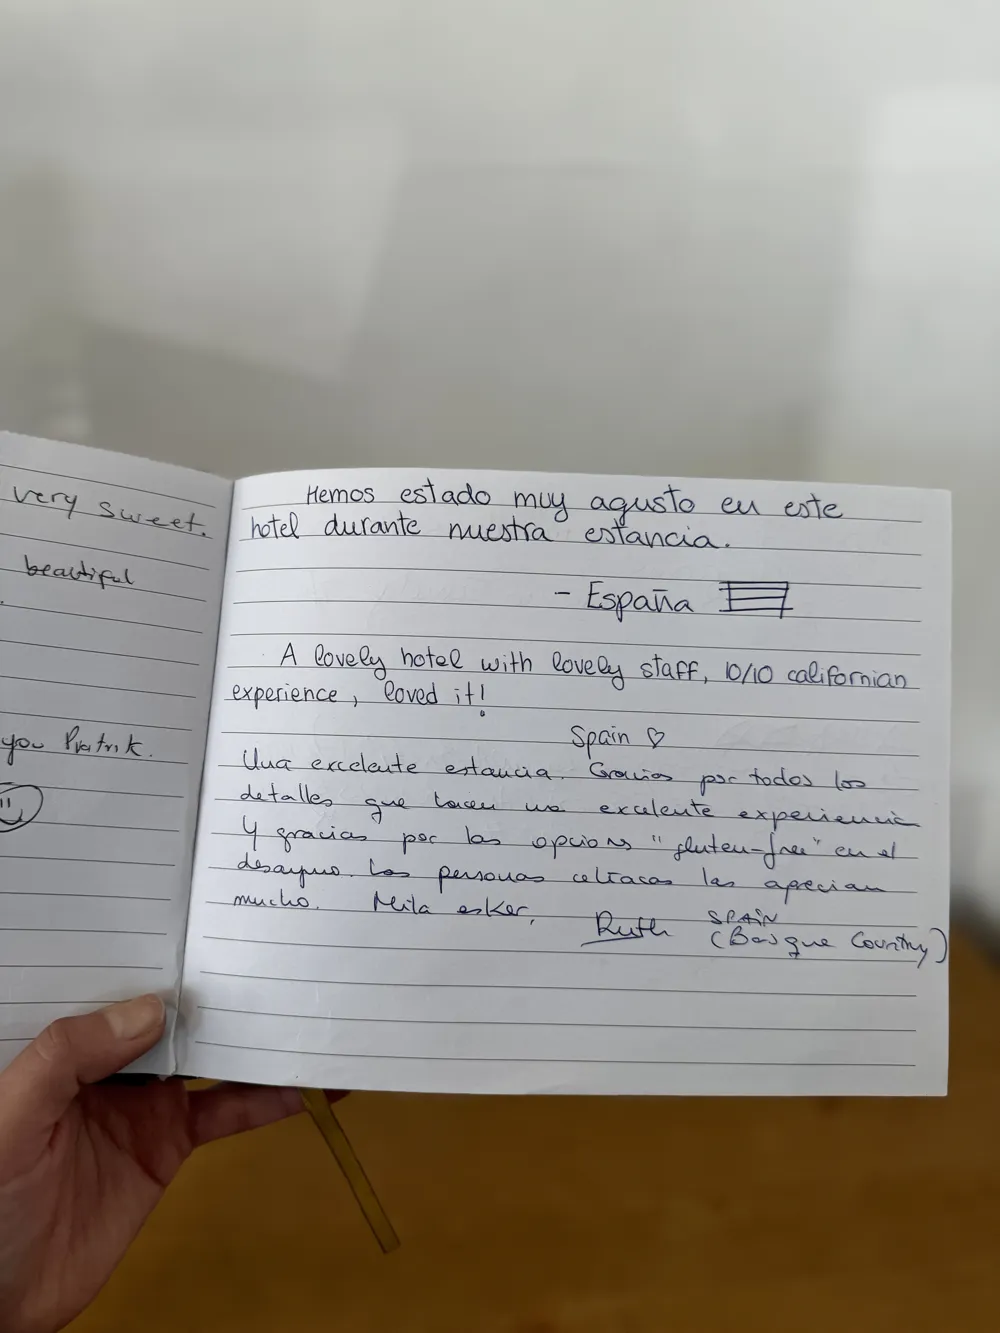 very sweet.
beautiful
you Pratik.
Hemos estado muy agusto en este
hotel durante nuestra estancia.
- España
A lovely hotel with lovely staff, 10/10 californian
experience, loved it!
Spain ♡
Una excelente estancia. Gracias por todos los
detalles que hacen una excelente experiencia
Y gracias por las opciones "gluten-free" en el
desayuno. Las personas celíacas las aprecian
mucho. Mila esker,
Ruth SPAIN
(Basque Country)